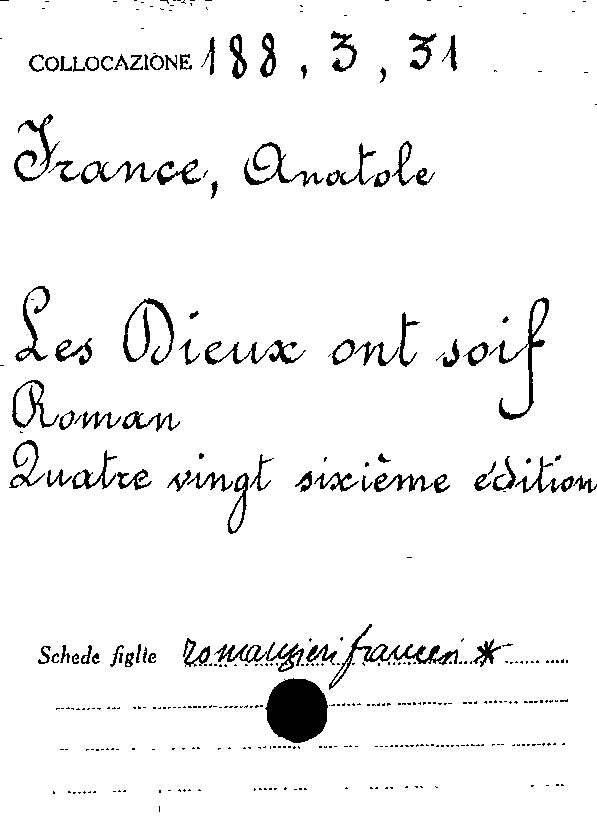 COLLOCAZIONE 188, 3, 31
France, Anatole
Les Dieux ont soif
Roman
Quatre vingt sixième édition
Schede figlie romanzieri francesi *